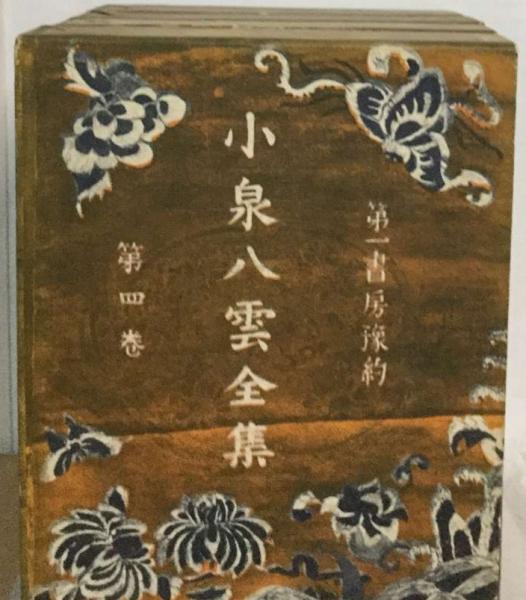 第一書房豫約
小泉八雲全集
第四卷